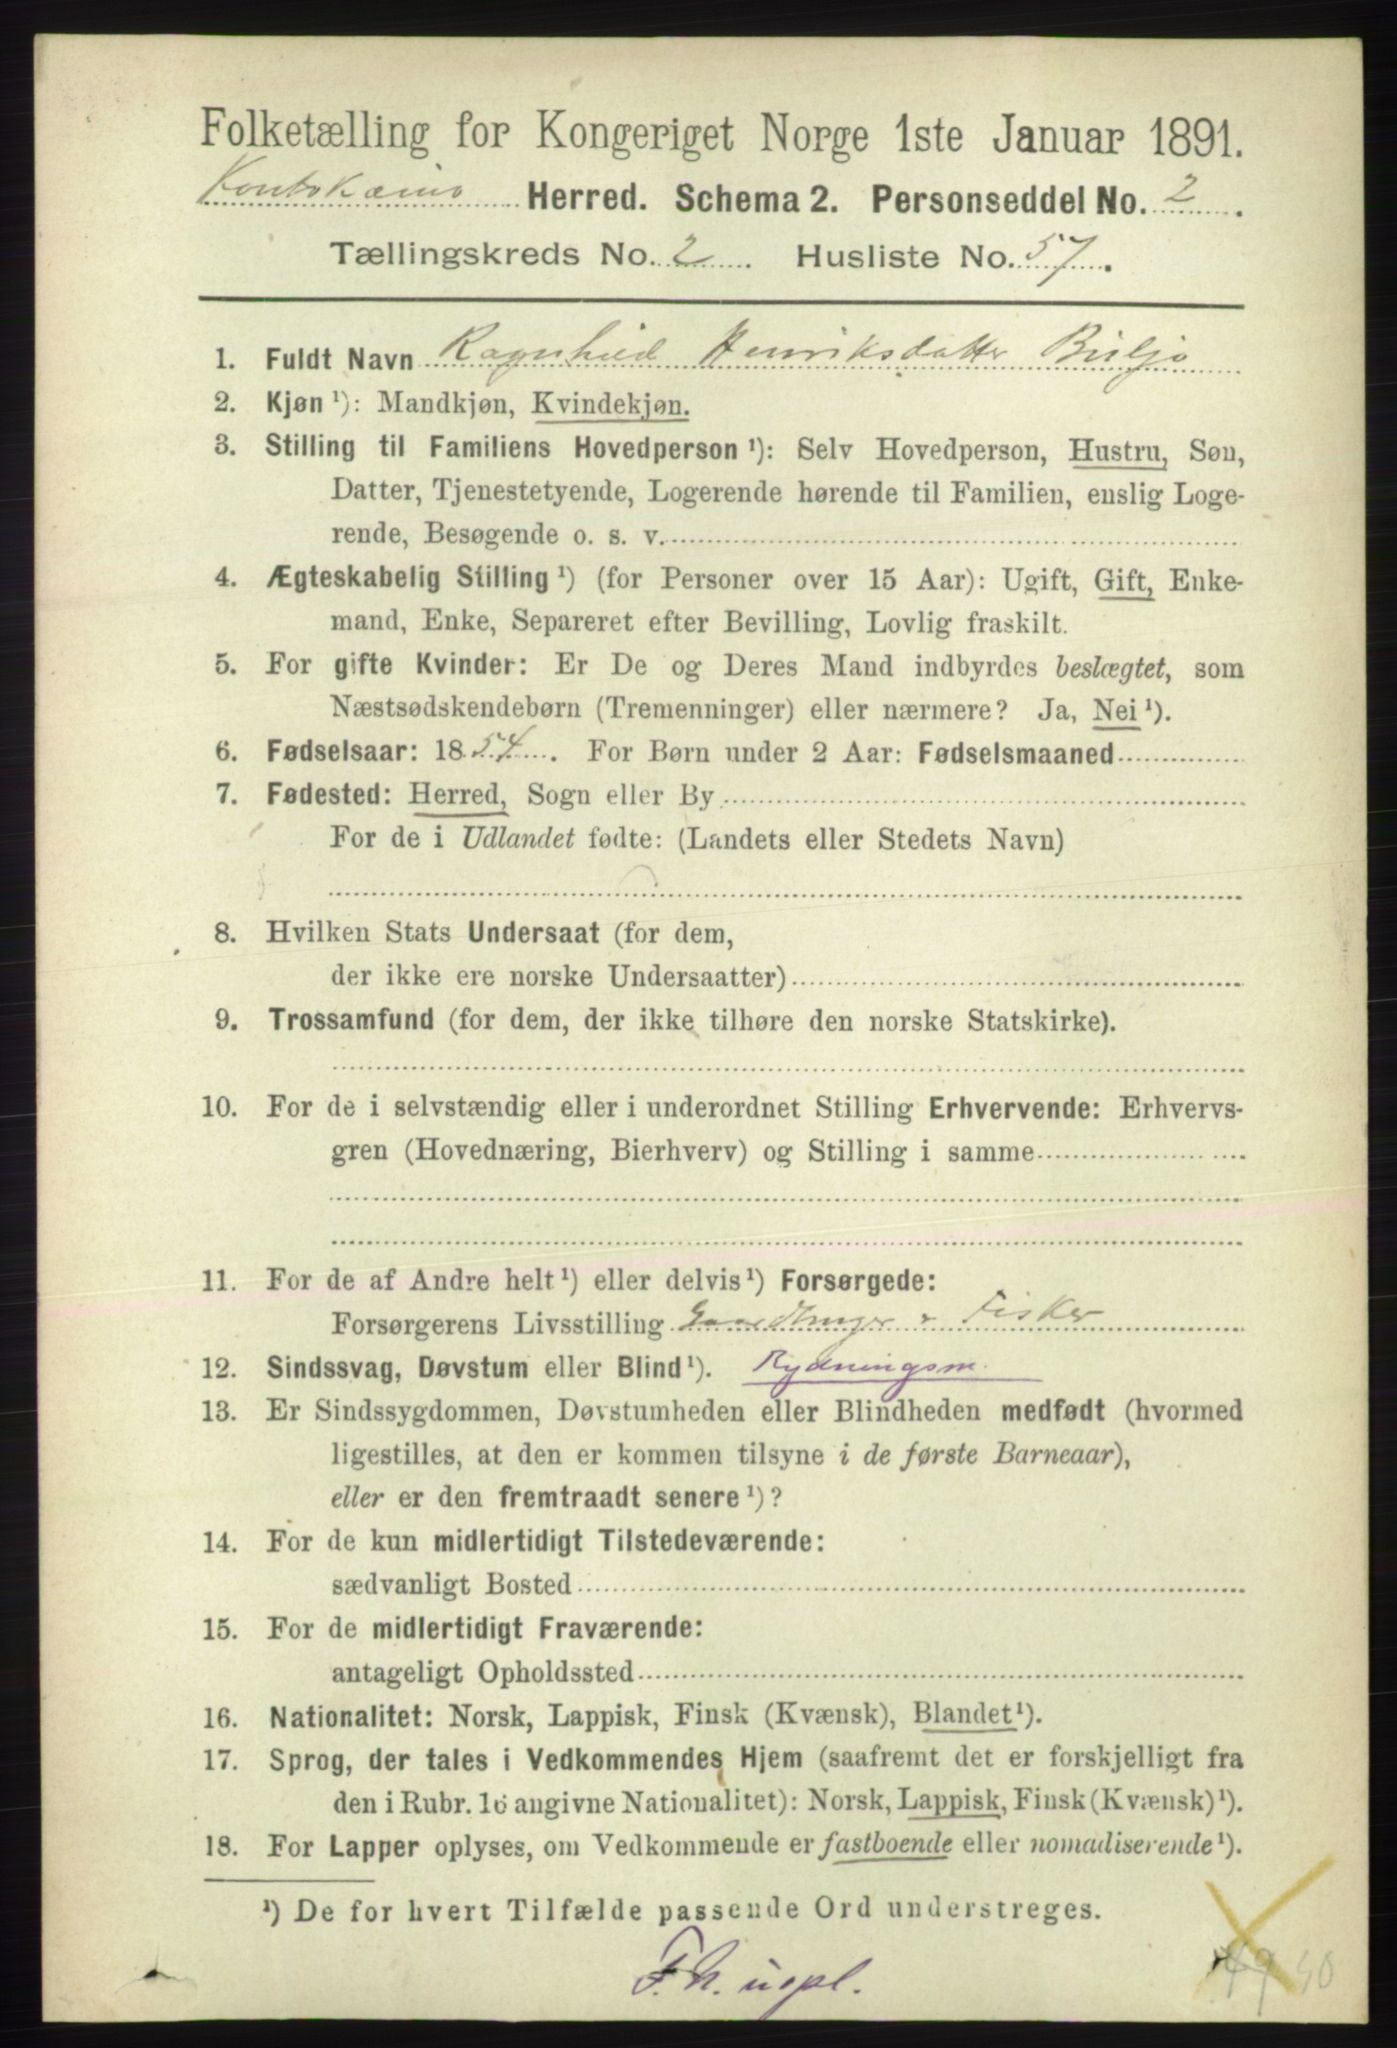 Folketælling for Kongeriget Norge 1ste Januar 1891.
Koutokæino Herred. Schema 2. Personseddel No. 2.
Tællingskreds No. 2. Husliste No. 57.
1. Fuldt Navn Ragnhild Henriksdatter
2. Kjøn ¹): Mandkjøn, Kvindekjøn.
3. Stilling til Familiens Hovedperson ¹): Selv Hovedperson, Hustru, Søn,
Datter, Tjenestetyende, Logerende hørende til Familien, enslig Loge-
rende, Besøgende o. s. v.
4. Ægteskabelig Stilling ¹) (for Personer over 15 Aar): Ugift, Gift, Enke-
mand, Enke, Separeret efter Bevilling, Lovlig fraskilt.
5. For gifte Kvinder: Er De og Deres Mand indbyrdes beslægtet, som
Næstsødskendebørn (Tremenninger) eller nærmere? Ja, Nei ¹).
6. Fødselsaar: 1854. For Børn under 2 Aar: Fødselsmaaned
7. Fødested: Herred, Sogn eller By
For de i Udlandet fødte: (Landets eller Stedets Navn)
8. Hvilken Stats Undersaat (for dem,
der ikke ere norske Undersaatter)
9. Trossamfund (for dem, der ikke tilhøre den norske Statskirke).
10. For de i selvstændig eller i underordnet Stilling Erhvervende: Erhvervs-
gren (Hovednæring, Bierhverv) og Stilling i samme
11. For de af Andre helt ¹) eller delvis ¹) Forsørgede:
Forsørgerens Livsstilling Gaardbruger & Fisker
12. Sindssvag, Døvstum eller Blind ¹). Rydningsm.
13. Er Sindssygdommen, Døvstumheden eller Blindheden medfødt (hvormed
ligestilles, at den er kommen tilsyne i de første Barneaar),
eller er den fremtraadt senere ¹)?
14. For de kun midlertidigt Tilstedeværende:
sædvanligt Bosted
15. For de midlertidigt Fraværende:
antageligt Opholdssted
16. Nationalitet: Norsk, Lappisk, Finsk (Kvænsk), Blandet ¹).
17. Sprog, der tales i Vedkommendes Hjem (saafremt det er forskjelligt fra
den i Rubr. 16 angivne Nationalitet): Norsk, Lappisk, Finsk (Kvænsk) ¹).
18. For Lapper oplyses, om Vedkommende er fastboende eller nomadiserende ¹).
¹) De for hvert Tilfælde passende Ord understreges.
F. N. uopl.